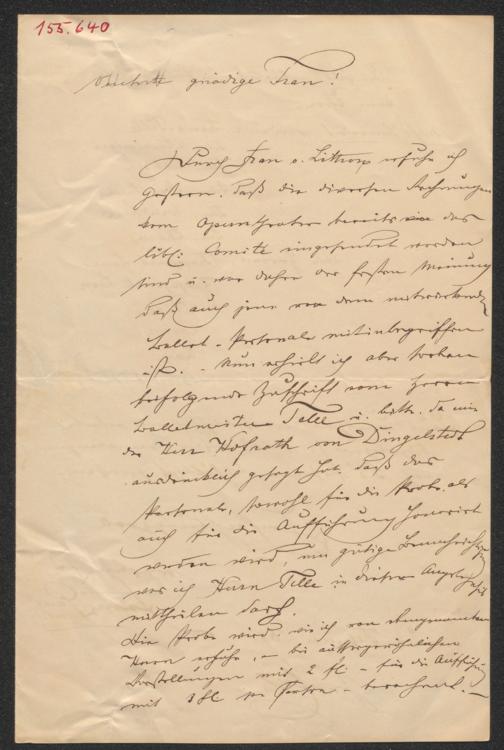 155.640
gnädige Frau!
Durch Frau v. Littrow erfuhr ich
gestern, daß die diversen Rechnungen
vom Operntheater bereits an das
löbl: Comité eingesendet worden
sind u. war daher der festen Meinung
daß auch jene von dem mitwirkenden
Ballet-Personale mitinbegriffen
ist. - Nun erhielt ich aber soeben
beifolgende Zuschrift vom Herrn
Balletmeister Telle u. bitte, da mir
der Herr Hofrath von Dingelstedt
ausdrücklich gesagt hat, daß das
Personale, sowohl für die Probe, als
auch für die Aufführung honorirt
werden wird, um gütige Benachrichtigung
was ich Herrn Telle in dieser Angelegenheit
mittheilen darf.
Die Probe wird, wie ich von obengenanntem
Herrn erfuhr, - bei aussergewöhnlichen
Vorstellungen mit 2 fl - für die Aufführung
mit 3 fl per Person - berechnet. -